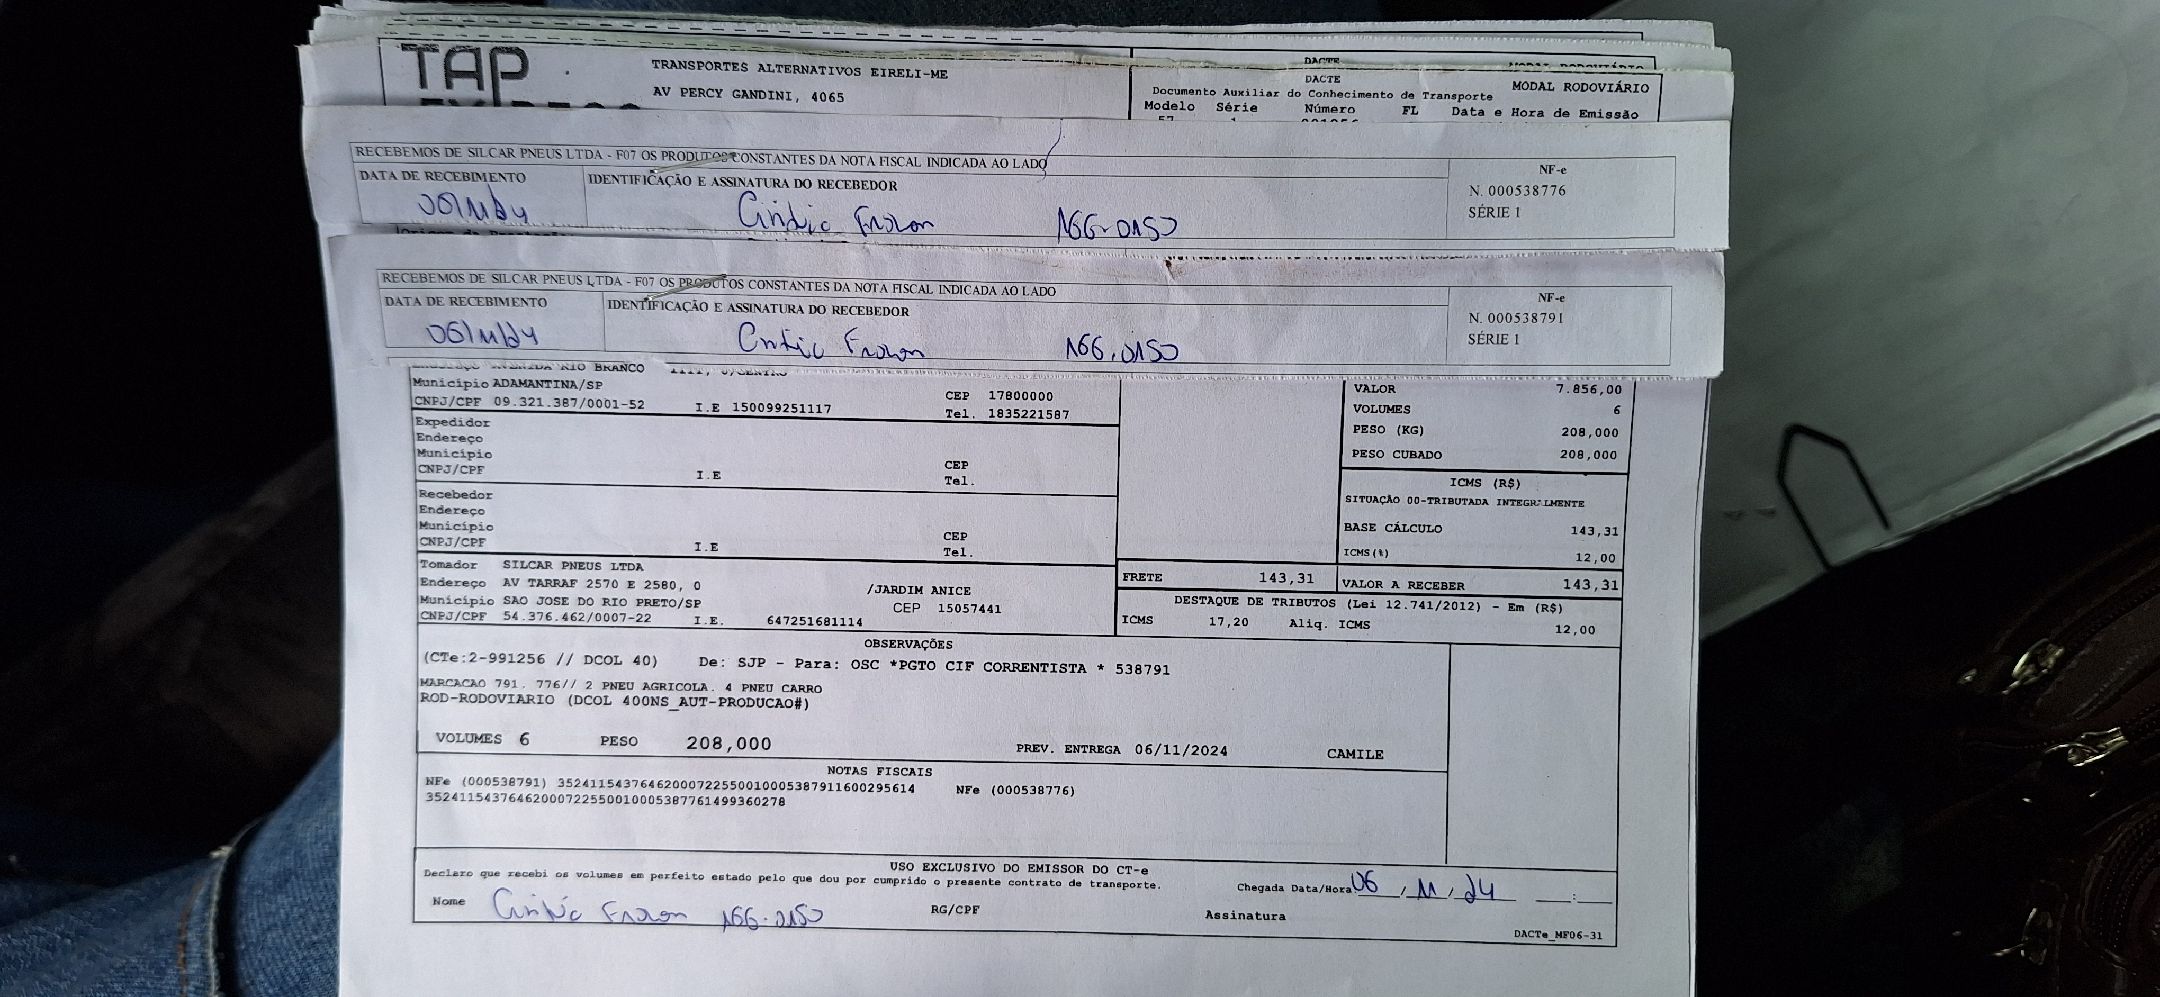 TAP
TRANSPORTES ALTERNATIVOS EIRELI-ME
AV PERCY GANDINI, 4065
DACTE
DACTE
MODAL RODOVIÁRIO
Documento Auxiliar do Conhecimento de Transporte
Modelo Série Número FL Data e Hora de Emissão
RECEBEMOS DE SILCAR PNEUS LTDA - F07 OS PRODUTOS CONSTANTES DA NOTA FISCAL INDICADA AO LADO
DATA DE RECEBIMENTO
IDENTIFICAÇÃO E ASSINATURA DO RECEBEDOR
NF-e
N. 000538776
SÉRIE 1
06/11/24
RECEBEMOS DE SILCAR PNEUS LTDA - F07 OS PRODUTOS CONSTANTES DA NOTA FISCAL INDICADA AO LADO
DATA DE RECEBIMENTO
IDENTIFICAÇÃO E ASSINATURA DO RECEBEDOR
NF-e
N. 000538791
SÉRIE 1
06/11/24
RIO BRANCO
Município ADAMANTINA/SP
CNPJ/CPF 09.321.387/0001-52 I.E 150099251117
CEP 17800000
Tel. 1835221587
VALOR 7.856,00
VOLUMES 6
PESO (KG) 208,000
PESO CUBADO 208,000
Expedidor
Endereço
Município
CNPJ/CPF I.E
CEP
Tel.
Recebedor
Endereço
Município
CNPJ/CPF I.E
CEP
Tel.
ICMS (R$)
SITUAÇÃO 00-TRIBUTADA INTEGRALMENTE
BASE CÁLCULO 143,31
ICMS(%) 12,00
Tomador SILCAR PNEUS LTDA
Endereço AV TARRAF 2570 E 2580, 0 /JARDIM ANICE
Município SAO JOSE DO RIO PRETO/SP CEP 15057441
CNPJ/CPF 54.376.462/0007-22 I.E. 647251681114
FRETE 143,31 VALOR A RECEBER 143,31
DESTAQUE DE TRIBUTOS (Lei 12.741/2012) - Em (R$)
ICMS 17,20 Aliq. ICMS 12,00
OBSERVAÇÕES
(CTe:2-991256 // DCOL 40) De: SJP - Para: OSC *PGTO CIF CORRENTISTA * 538791
MARCACAO 791. 776// 2 PNEU AGRICOLA. 4 PNEU CARRO
ROD-RODOVIARIO (DCOL 400NS_AUT-PRODUCAO#)
VOLUMES 6 PESO 208,000 PREV. ENTREGA 06/11/2024 CAMILE
NOTAS FISCAIS
NFe (000538791) 35241154376462000722550010005387911600295614 NFe (000538776)
35241154376462000722550010005387761499360278
USO EXCLUSIVO DO EMISSOR DO CT-e
Declaro que recebi os volumes em perfeito estado pelo que dou por cumprido o presente contrato de transporte.
Chegada Data/Hora 06 / 11 / 24 :
Nome
RG/CPF
Assinatura
DACTe_MF06-31